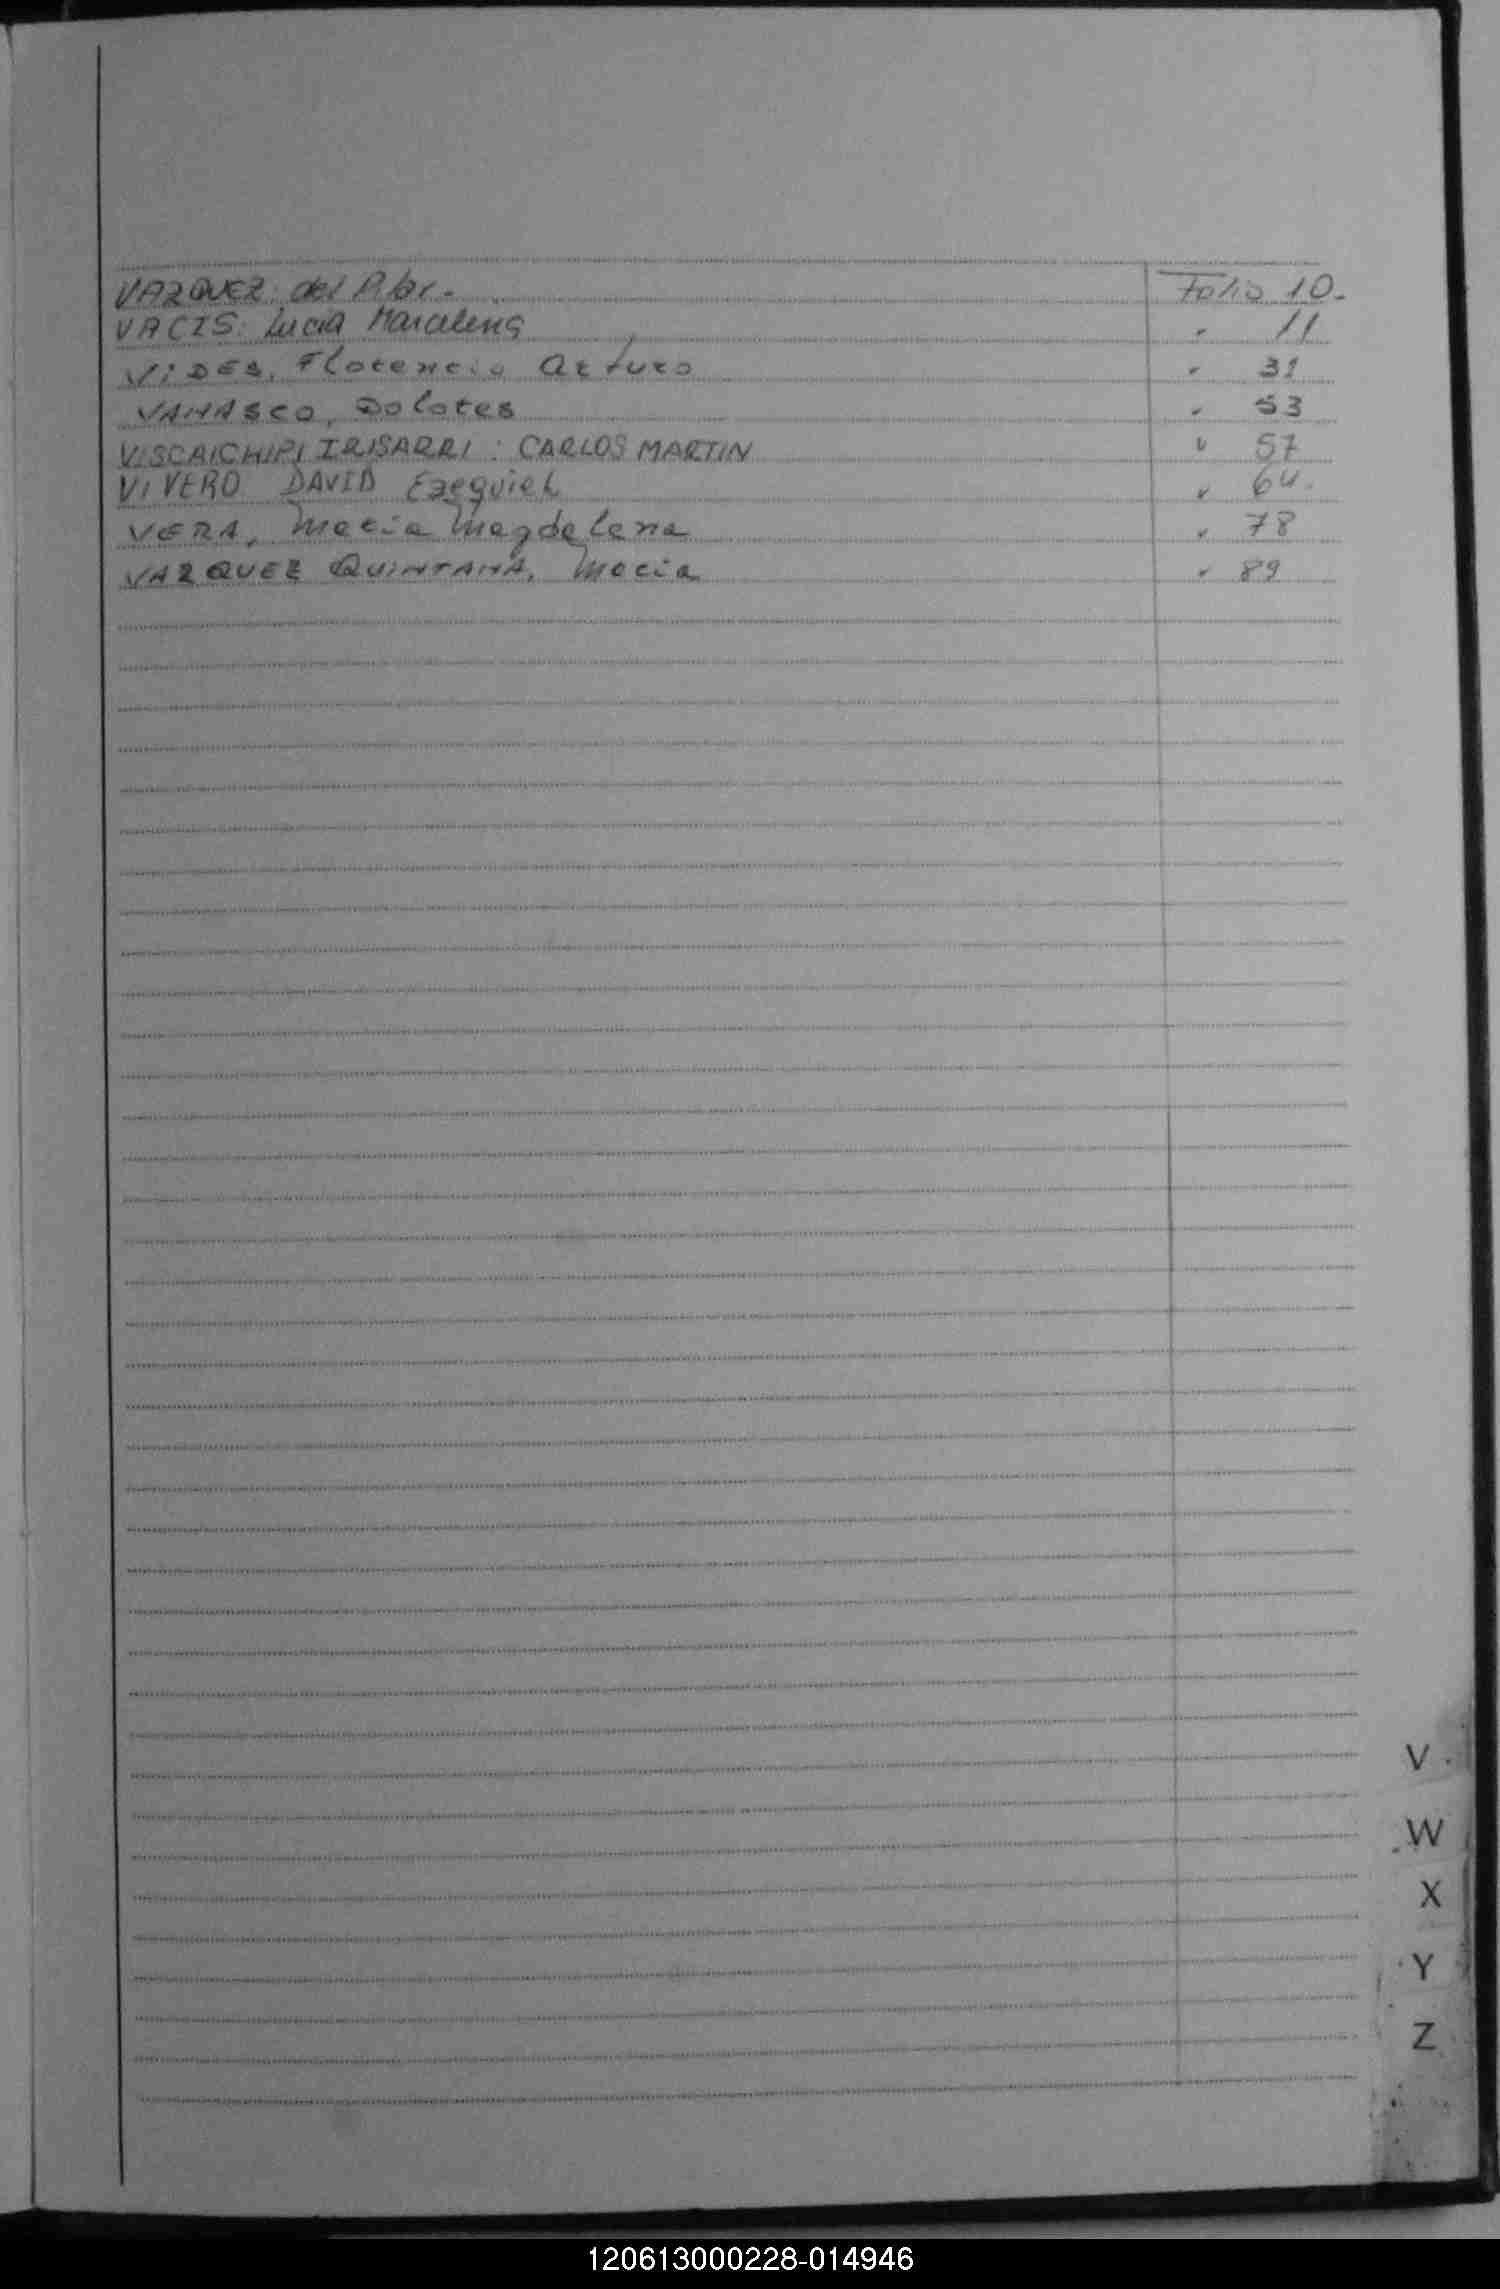 VAZQUEZ: del Pilar.- Folio 10.-
VACIS: Lucia Marcelena " 11
ViDES, Florencio Arturo " 31
VANASCO, Dolores " 53
VISCAICHIPI IRISARRI: CARLOS MARTIN " 57
ViVERO DAVID EzequieL " 64.
VERA, Maria Magdalena " 78
VAZQUEZ QUINTANA, Maria " 89
V
W
X
Y
Z
120613000228-014946